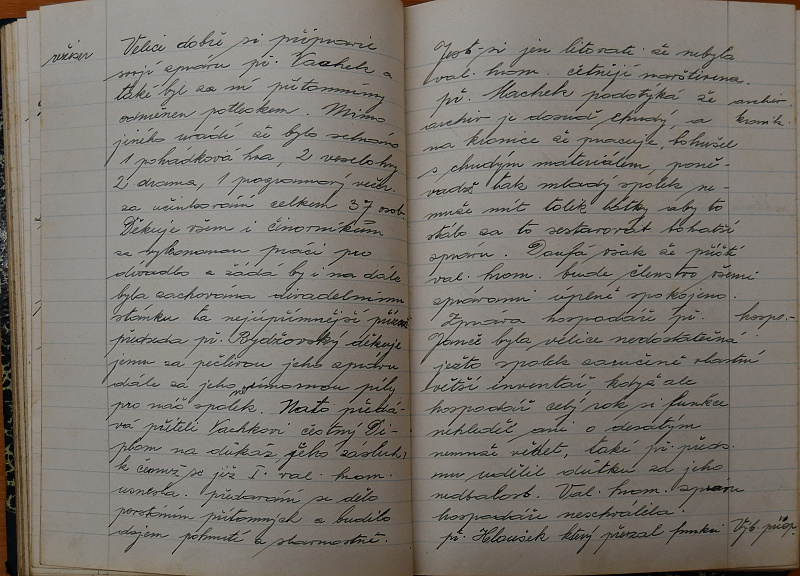 režiser
Velice dobře si připravil
svoji zprávu př. Vachek a
také byl za ni přítomnými
odměněn potleskem. Mimo
jiného uvádí že bylo sehráno
1 pohádková hra, 2 veselohry
2 drama, 1 programový večer
za účinkování celkem 37 osob.
Děkuje všem i činorníkům
za vykonanou práci pro
divadlo a žádá by i na dále
byla zachována divadelnímu
stánku ta nejupřímnější přízeň
předseda př. Rydžovský děkuje
jemu za pečlivou jeho zprávu
dále za jeho píly
pro náš spolek. Nato předá-
vá příteli Vachkovi čestný Di-
plom na důkaz jeho zásluh,
k čemuž se již I. val. hrom.
usnesla. předávání se dělo
povstáním přítomných a budilo
dojem pohnutí a slavnostně.
Jest-si jen litovati že nebyla
val. hrom. četněji navštívena.
př. Machek podotýká že
archiv je dosud chudý, a
archiv.
kronik.
na kronice že pracuje, bohužel
s chudým materiálem, poně-
vadž tak mladý spolek ne-
může mít tolik látky aby to
stálo za to sestavovat bohatší
zprávu. Doufá však že příští
val. hrom. bude členstvo všemi
zprávami úplně spokojeno.
Zpráva hospodáře př.
hospo.-
Janče byla velice nedostatečná
ježto spolek zaručeně vlastní
větší inventář když ale
hospodář celý rok si funkce
nehleděl ani o desátým
nemuže vědět, také př. předs.
mu udělil důtku za jeho
nedbalost. Val. hrom. zprávu
hospodáře neschválila.
př. Hloušek který převzal funkci
Výb. přísp.